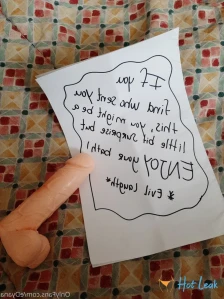 If you
find who sent you
this, you might be a
little bit surprise but
ENJOY your bath!
* Evil laugh*
Hot Leak